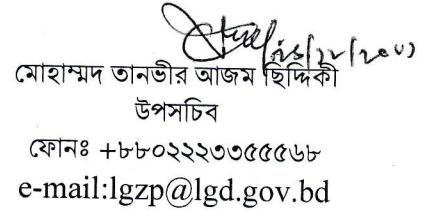 মোহাম্মদ তানভীর আজম ছিদ্দিকী
উপসচিব
ফোনঃ +৮৮০২২২৩৩৫৫৫৬৮
e-mail:lgzp@lgd.gov.bd